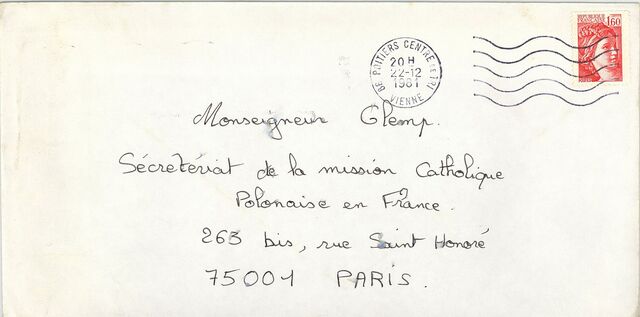 REPUBLIQUE
FRANCAISE
1,60
86 POITIERS CENTRE DE TRI
20 H
22-12
1981
VIENNE
Monseigneur Glemp.
Sécretériat de la mission Catholique
Polonaise en France.
263 bis, rue Saint Honoré
75001 PARIS.